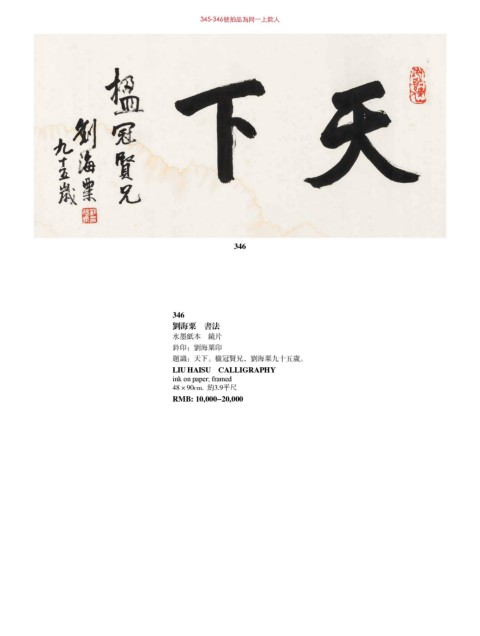 345-346號拍品為同一上款人
天下
楹冠賢兄
劉海粟
九十五歲
346
346
劉海粟 書法
水墨紙本 鏡片
鈐印：劉海粟印
題識：天下。楹冠賢兄，劉海粟九十五歲。
LIU HAISU CALLIGRAPHY
ink on paper, framed
48 × 90cm. 約3.9平尺
RMB: 10,000–20,000